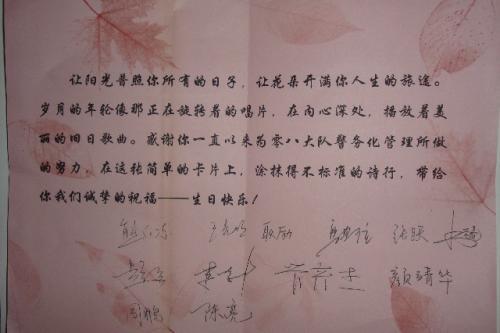 让阳光普照你所有的日子，让花朵开满你人生的旅途。
岁月的年轮像那正在旋转着的唱片，在内心深处，播放着美
丽的旧日歌曲。感谢你一直以来为零八大队警务化管理所做
的努力，在这张简单的卡片上，涂抹得不标准的诗行，带给
你我们诚挚的祝福——生日快乐！
耿励 张映
颜靖华
陈亮